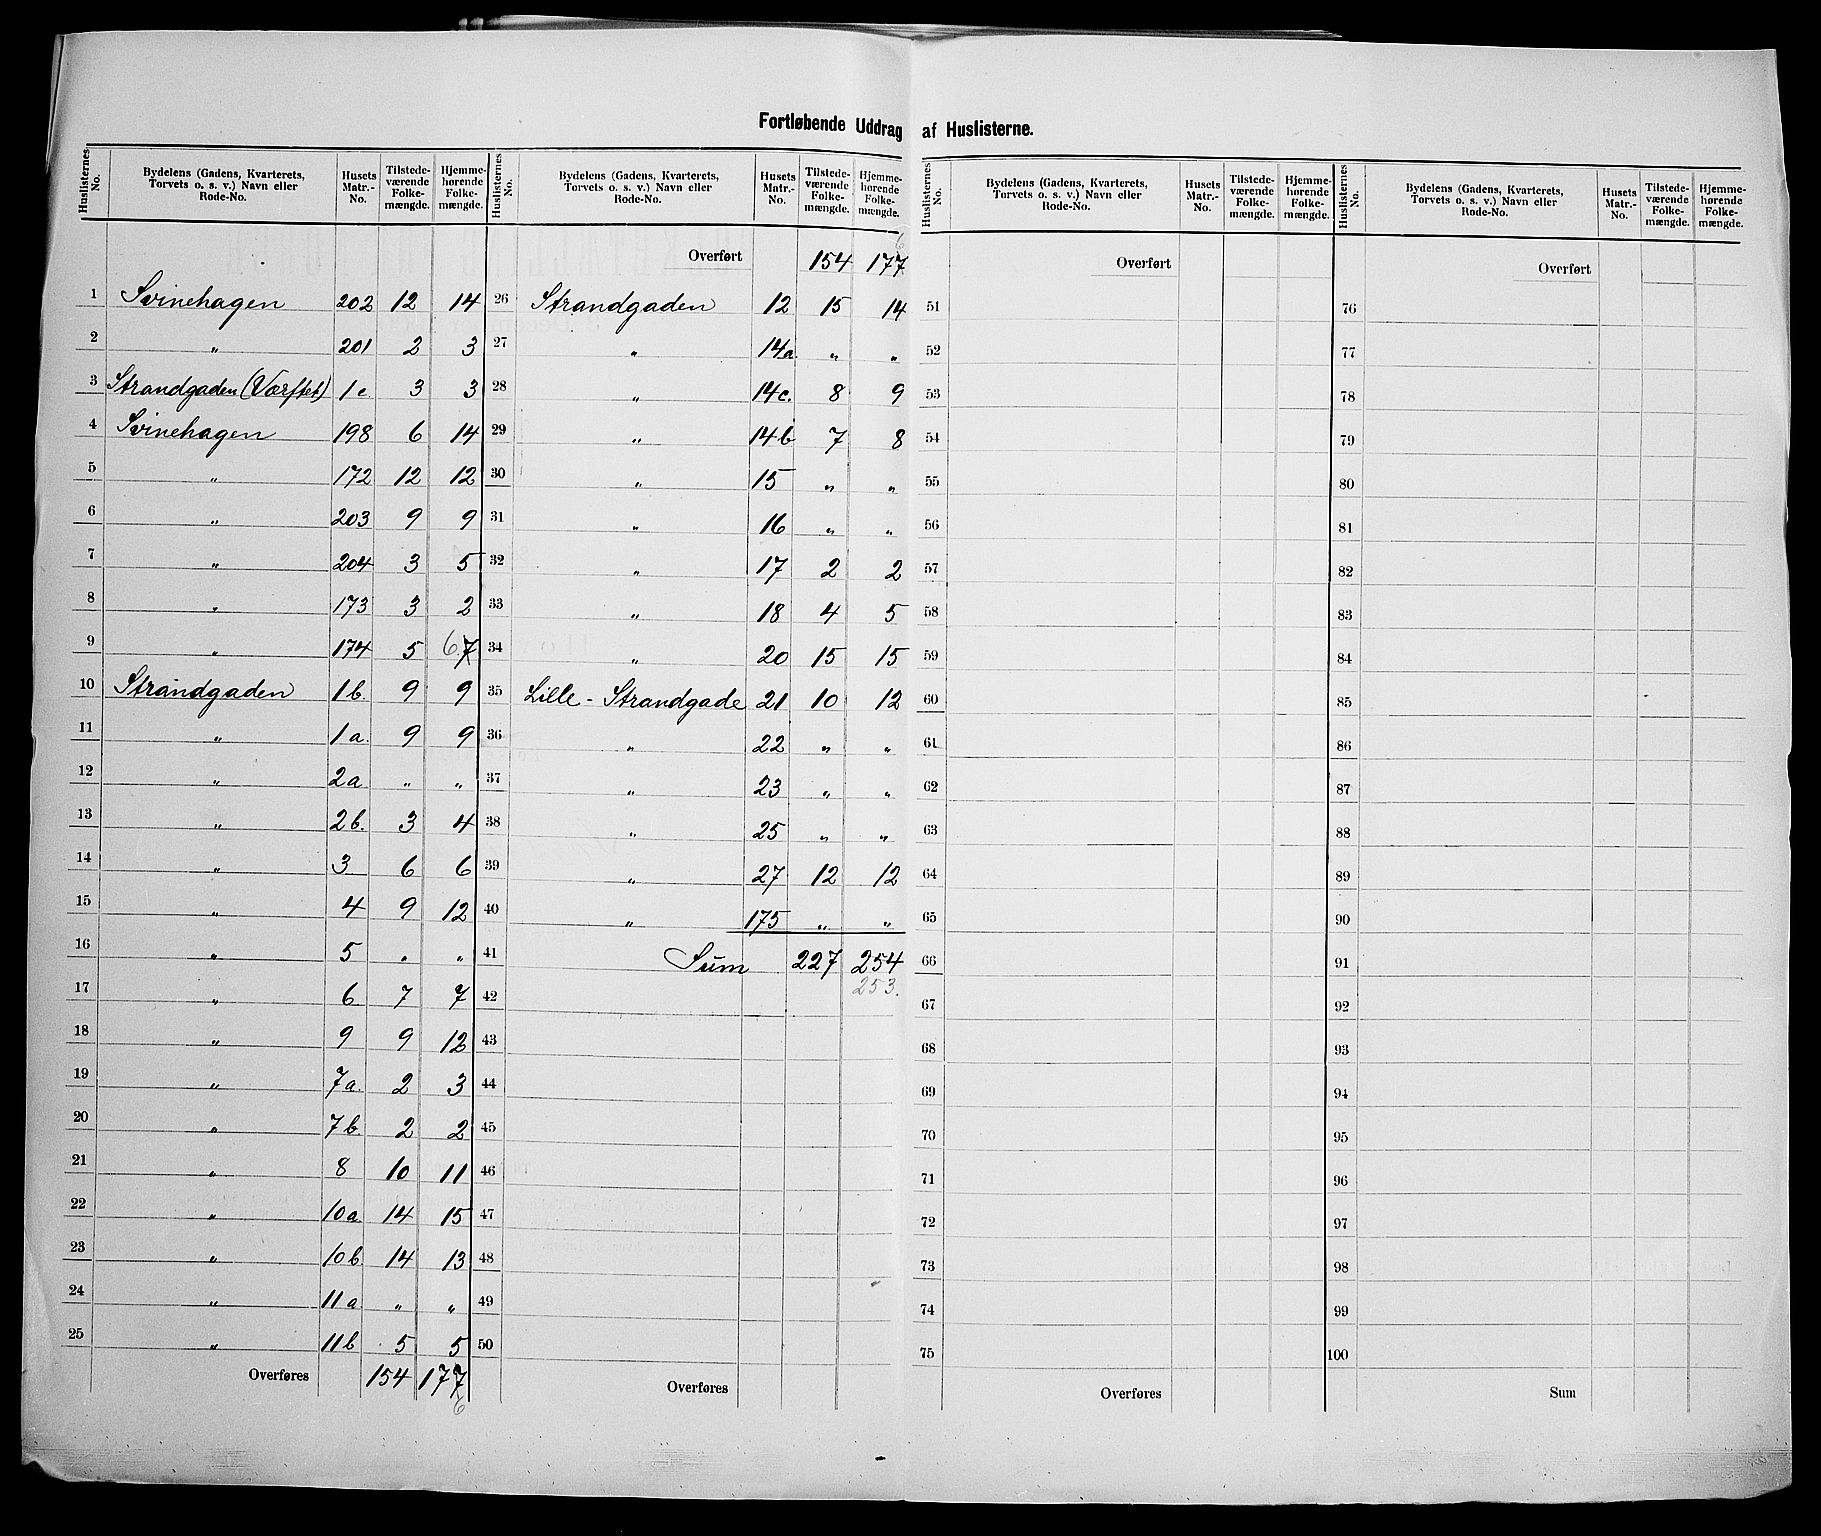 Fortløbende Uddrag af Huslisterne.
Huslisternes No. | Bydelens (Gadens, Kvarterets, Torvets o. s. v.) Navn eller Rode-No. | Husets Matr.-No. | Tilstedeværende Folkemængde. | Hjemmehørende Folkemængde.
1 Svinehagen 202 12 14
2 " 201 2 3
3 Strandgaden (Værftet) 1c 3 3
4 Svinehagen 198 6 14
5 " 172 12 12
6 " 203 9 9
7 " 204 3 5
8 " 173 3 2
9 " 174 5 6 7
10 Strandgaden 1b. 9 9
11 " 1a. 9 9
12 " 2a " "
13 " 2b. 3 4
14 " 3 6 6
15 " 4 9 12
16 " 5 " "
17 " 6 7 7
18 " 9 9 12
19 " 7a. 2 3
20 " 7b. 2 2
21 " 8 10 11
22 " 10a. 14 15
23 " 10b. 14 13
24 " 11a " "
25 " 11b 5 5
Overføres 154 177
6
Huslisternes No. | Bydelens (Gadens, Kvarterets, Torvets o. s. v.) Navn eller Rode-No. | Husets Matr.-No. | Tilstedeværende Folkemængde. | Hjemmehørende Folkemængde.
6
Overført 154 177
26 Strandgaden 12 15 14
27 " 14a " "
28 " 14c. 8 9
29 " 14b 7 8
30 " 15 " "
31 " 16 " "
32 " 17 2 2
33 " 18 4 5
34 " 20 15 15
35 Lille - Strandgade 21 10 12
36 " 22 " "
37 " 23 " "
38 " 25 " "
39 " 27 12 12
40 " 175 " "
41 Sum 227 254
253.
42
43
44
45
46
47
48
49
50
Overføres
Huslisternes No. | Bydelens (Gadens, Kvarterets, Torvets o. s. v.) Navn eller Rode-No. | Husets Matr.-No. | Tilstedeværende Folkemængde. | Hjemmehørende Folkemængde.
Overført
51
52
53
54
55
56
57
58
59
60
61
62
63
64
65
66
67
68
69
70
71
72
73
74
75
Overføres
Huslisternes No. | Bydelens (Gadens, Kvarterets, Torvets o. s. v.) Navn eller Rode-No. | Husets Matr.-No. | Tilstedeværende Folkemængde. | Hjemmehørende Folkemængde.
Overført
76
77
78
79
80
81
82
83
84
85
86
87
88
89
90
91
92
93
94
95
96
97
98
99
100
Sum